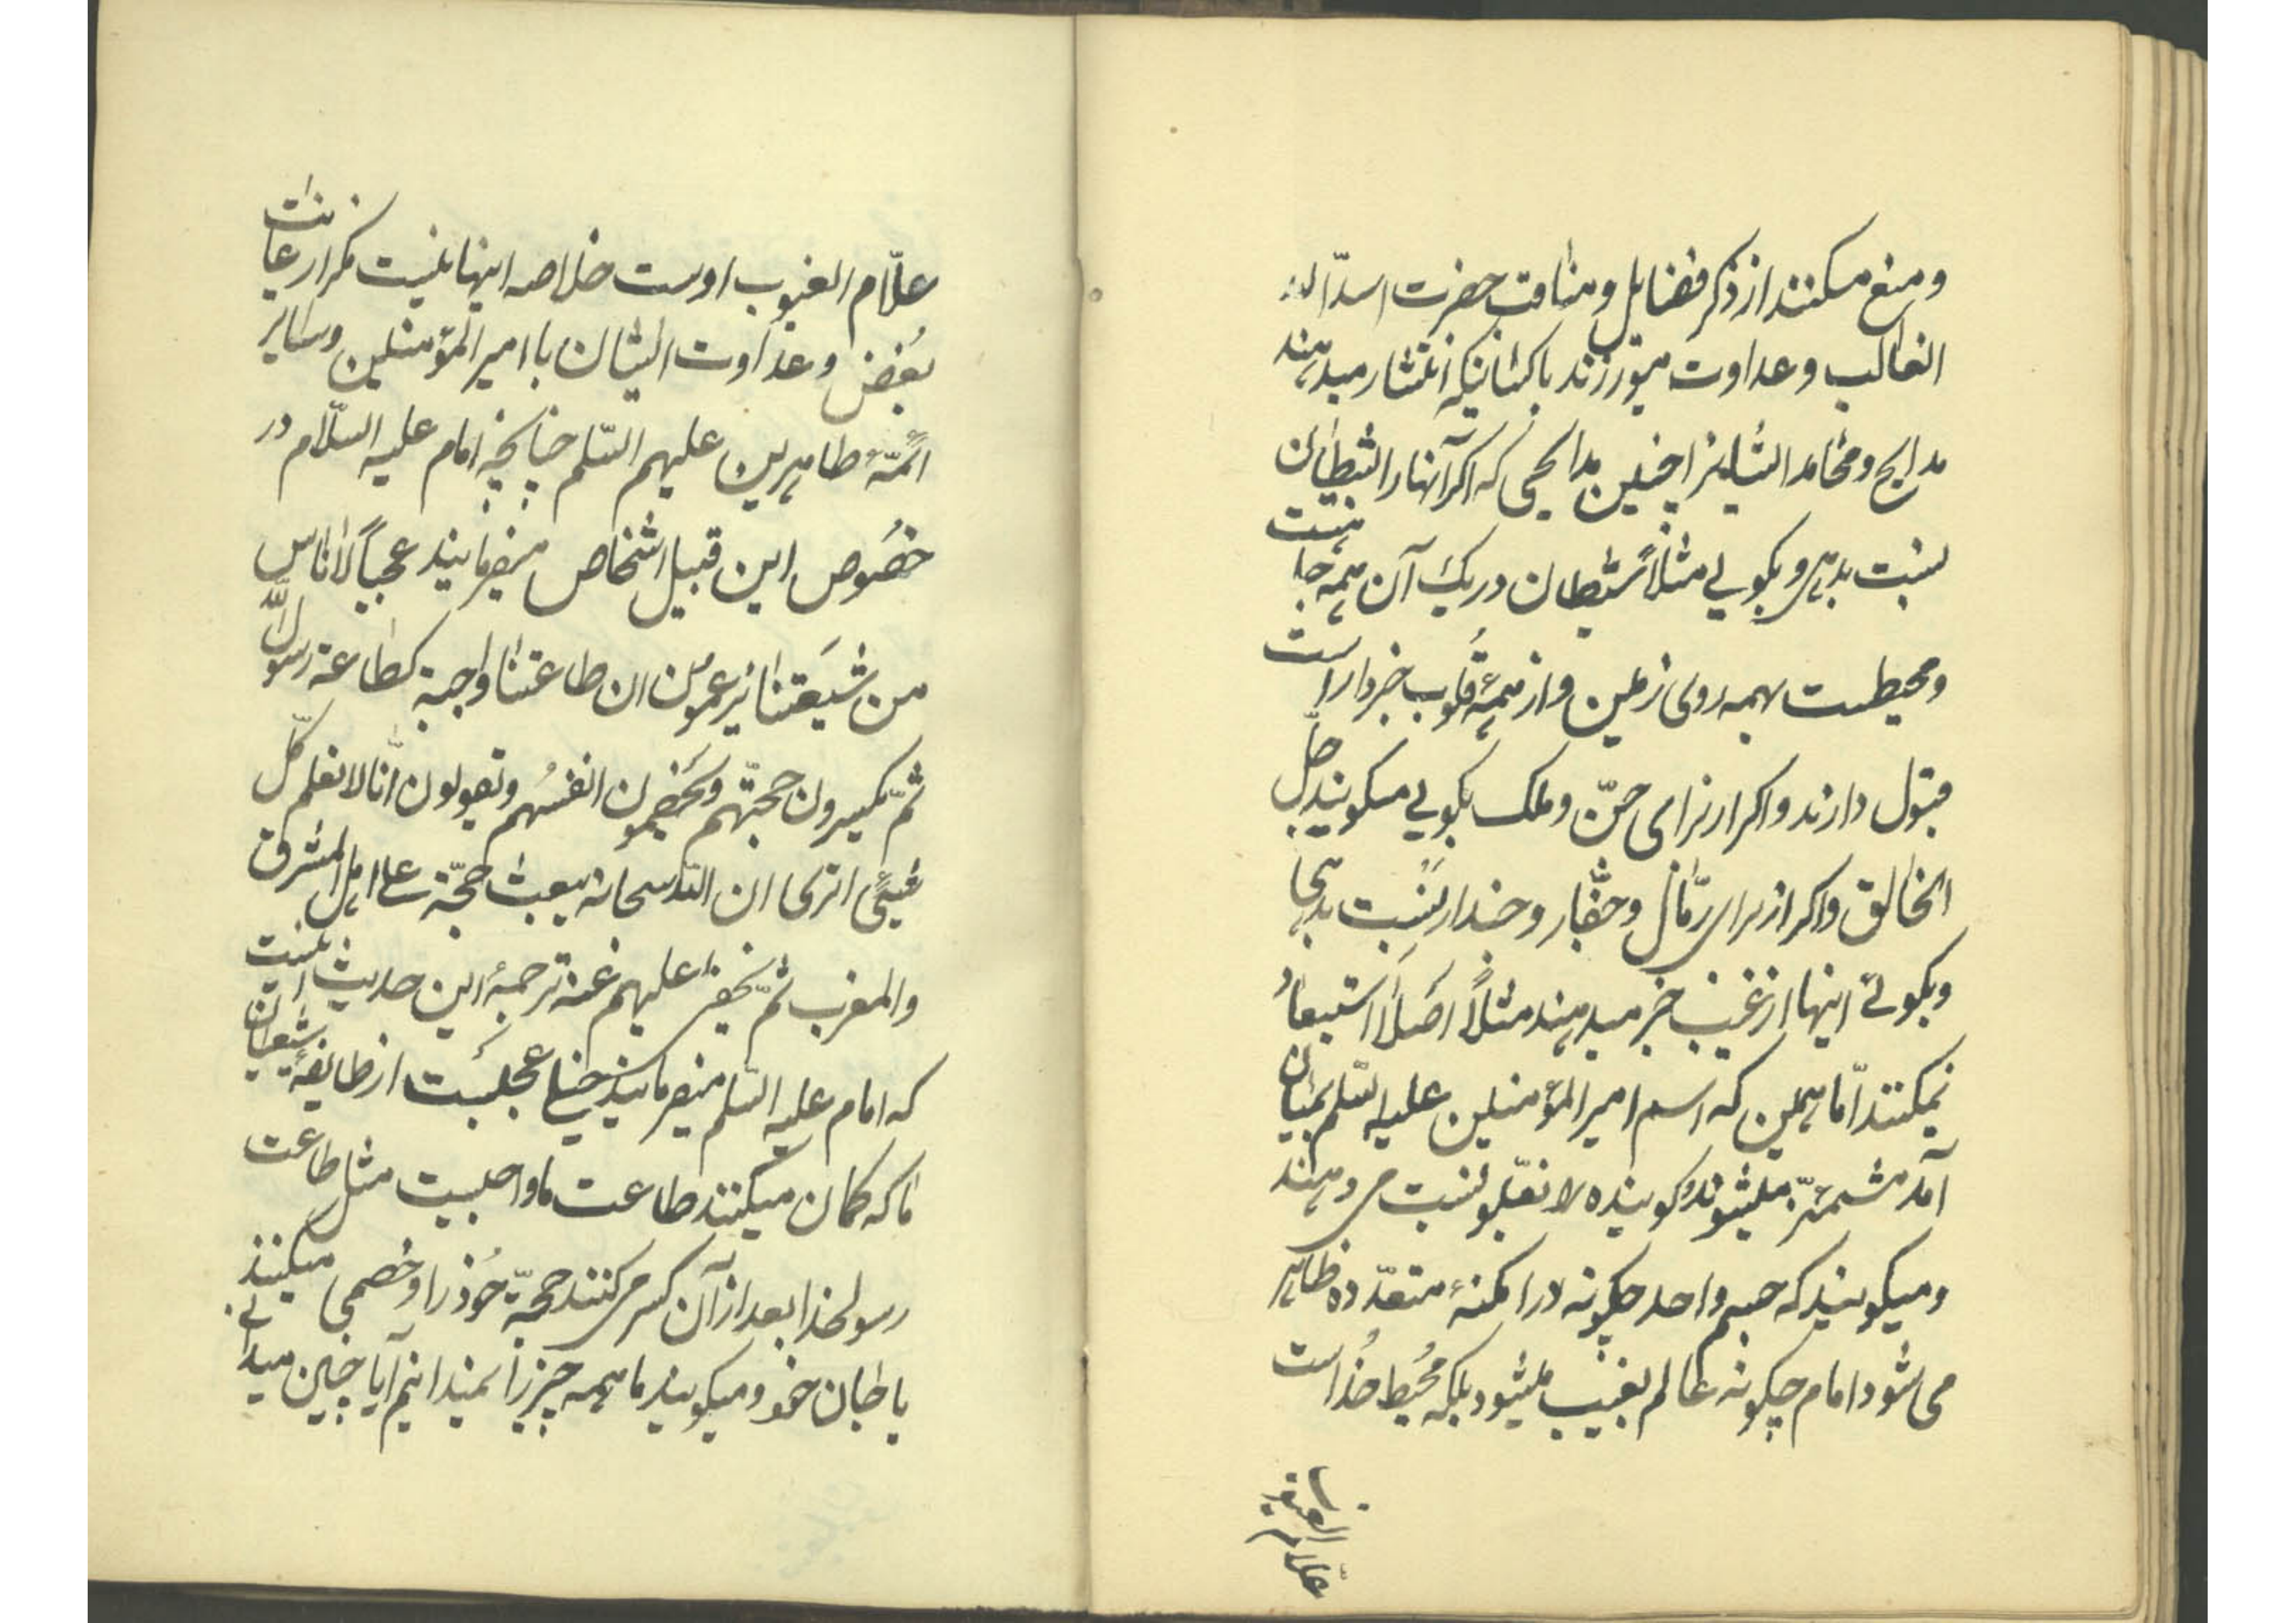 ومنع میکنند از ذکر فضایل ومناقب حضرت اسد الله
الغالب وعداوت میورزند با کسانیکه انتشار میدهند
مدایح ومحامد ایشانرا چنین مدایحی که اگر آنها را بشیطان
نسبت بدهی وبکویی مثلاً شیطان در یک آن همه جا هست
ومحیطست بهمه روی زمین واز همهٔ قلوب خبردار است
قبول دارند واکر از برای جنّ وملک بکویی میکویند جلّ
الخالق واکر از برای رمّال وجفّار وجندار نسبت بدهی
وبکوئی اینها از غیب خبر میدهند مثلاً اصلاً استبعاد
نمیکنند امّا همین که اسم امیر المؤمنین علیه السّلم بمیان
آمد مشمئزّ میشوند وکوینده را بغلو نسبت می دهند
ومیکویند که جسم واحد چکونه در امکنهٔ متعدّده ظاهر
می شود امام چکونه عالم بغیب میشود بلکه محیط خداست
علام الغیوب
علّام الغیوب اوست خلاصه اینها نیست مکر از غایت
بغض وعداوت ایشان با امیر المؤمنین وسایر
ائمّهٔ طاهرین علیهم السّلم چنانچه امام علیه السّلام در
خصوص این قبیل اشخاص میفرمایند عجباً لاناس
من شیعتنا یزعمون ان طاعتنا واجبة کطاعة رسول الله
ثمّ یکسرون حجّتهم ویخصمون انفسهم ویقولون انّا لا نعلم کلّ
شیئی اتری ان الله سبحانه یبعث حجّة علی اهل المشرق
والمغرب ثمّ یخفی علیهم عنه ترجمهٔ این حدیث اینست
که امام علیه السّلم میفرمایند خیلی عجبست از طایفهٔ شیعیان
ما که کمان میکنند طاعت ما واجبست مثل طاعت
رسولخدا بعد از آن کسر می کنند حجّت خود را وخصمی میکنند
با جان خود ومیکویند ما همه چیز را نمیدانیم آیا چنین میدانی